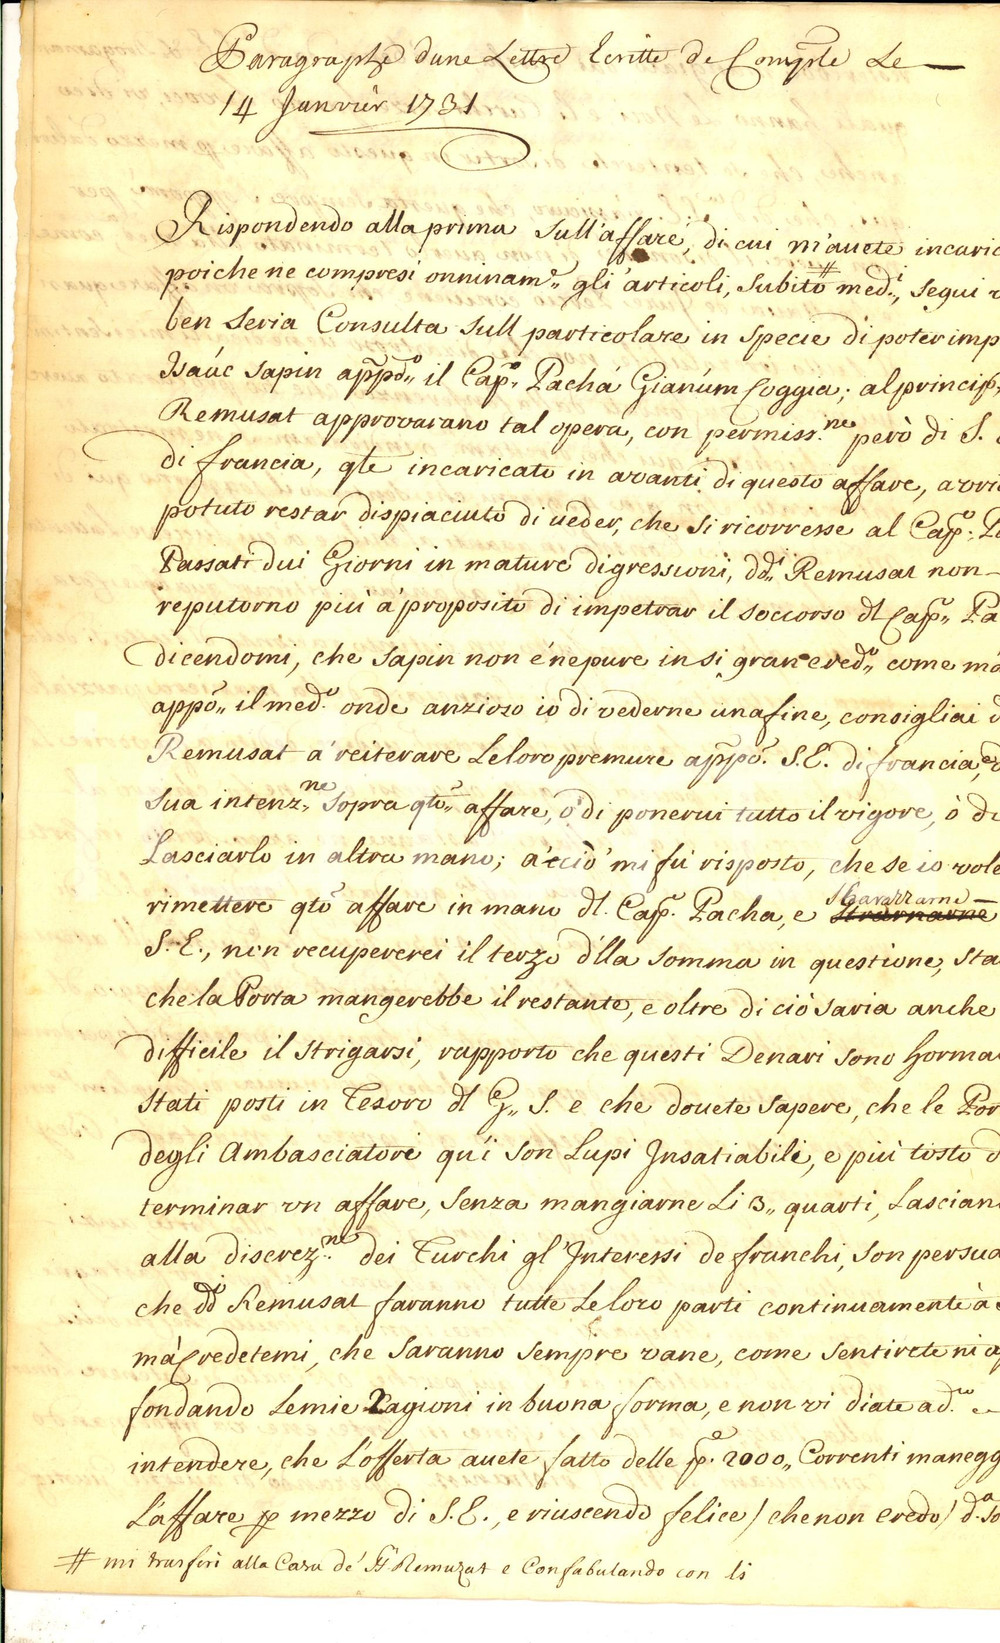 Paragraphe dune Lettre Ecritte de Compste Le
14 Janvier 1731
Rispondendo alla prima sull'affare, di cui m'avete incaric
poiche ne compresi onninam.e gli articoli, subito # med.i, segui
ben seria Consulta sull particolare in specie di poter imp
Isaúc Sapin appõ il Cap.o Pachá Gianúm Coggia; al princip.
Remusat approvarano tal opera, con permiss.ne però di S.
di francia, qle incaricato in avanti di questo affare, avri
potuto restar dispiaciuto di ueder, che si ricorresse al Cap.o Pa
Passati dui Giorni in mature digressioni, dd.i Remusat non
reputorno più à proposito di impetrar il soccorso dl Cap.o Pa
dicendomi, che Sapin non é nepure in si gran cred.o come m'a
appõ il med.o onde anzioso io di vederne una fine, consigliai d
Remusat a' reiterare Le loro premure appõ S.E. di francia,
sua intenz.ne sopra qto affare, ò di ponerui tutto il vigore, ò de
Lasciarlo in altra mano; a'cciò mi fú risposto, che se io vole
rimettere qto affare in mano dl. Cap. Pacha, e sbarazzarne
S.E., non recupererei il terzo d'lla somma in questione, sta
che la Porta mangerebbe il restante, e oltre di ciò saria anche
difficile il strigarsi, rapporto che questi Denari sono horma
stati posti in Tesoro dl G. S. e che dovete sapere, che le Por
degli Ambasciatori qúi son Lupi Insatiabili, e più tosto d
terminar un affare, senza mangiarne Li 3 quarti, Lascian
alla discrez.ne dei Turchi gl'Interessi de franchi, son persua
che dd.i Remusat faranno tutte Le loro parti continuamente à
mà Credetemi, che saranno sempre vane, come sentirete ni
fondando Le mie Ragioni in buona forma, e non vi diate ad.
intendere, che L'offerta avete fatto delle p. 2000 Correnti manegg
L'affare p mezzo di S.E., e riuscendo felice / che non credo / d.a so
# mi trasferì alla Casa de' SS.i Remuzat e Confabulando con li